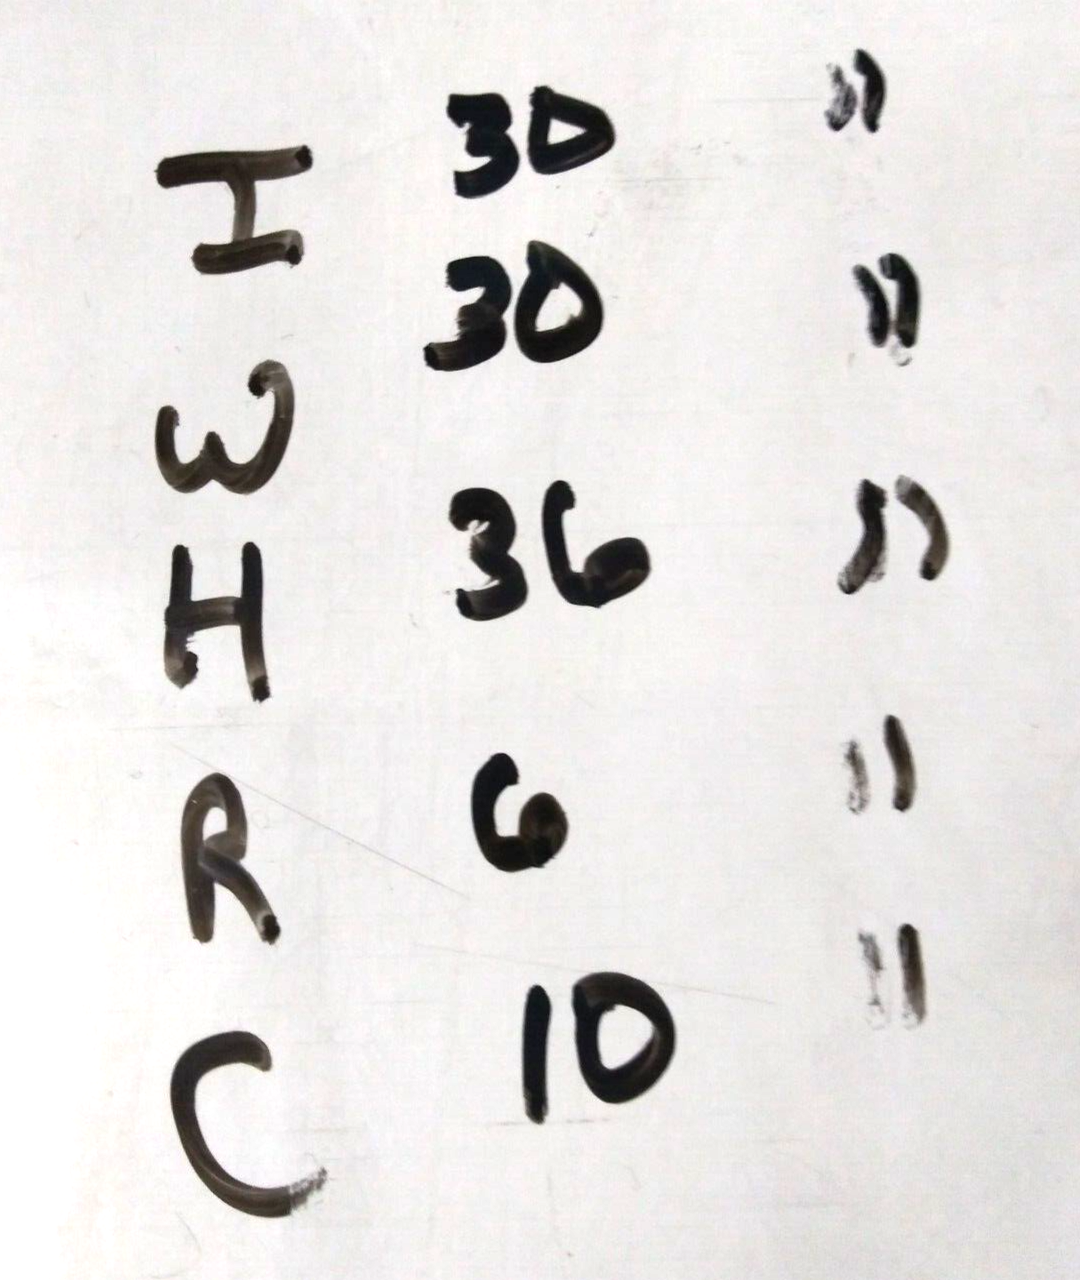 I 30 "
W 30 "
H 36 "
R 6 "
C 10 "